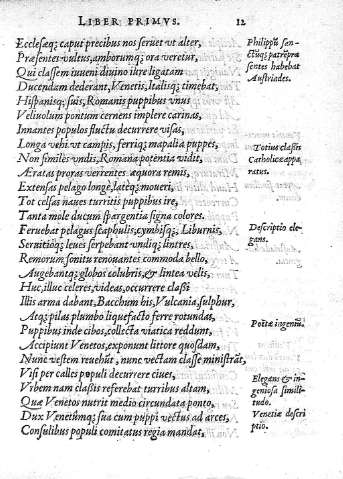 LIBER PRIMVS. 12
Ecclesęq; caput precibus nos seruet vt alter,
Præsentes vultus, amborumq; ora veretur,
Qui classem iuueni diuino iure ligatam
Ducendam dederant, Venetis, Italisq; timebat,
Hispanisq; suis, Romanis puppibus vnus
Veliuolum pontum cernens implere carinas,
Innantes populos fluctu decurrere visas,
Longa vehi vt campis, ferriq; mapalia puppes,
Non similes vndis, Romana potentia vidit,
Æratas proras verrentes æquora remis,
Extensas pelago longè, lateq; moueri,
Tot celsas naues turritis puppibus ire,
Tanta mole ducum spargentia signa colores.
Feruebat pelagus scaphulis, cymbisq;, Liburnis,
Seruitioq; leues serpebant vndiq; lintres,
Remorum sonitu renouantes commoda bello,
Augebantq; globos colubris, & lintea velis,
Huc, illuc celeres, videas, occurrere classi
Illis arma dabant, Bacchum his, Vulcania sulphur,
Atq; pilas plumbo liquefacto ferre rotundas,
Puppibus inde cibos, collecta viatica reddunt,
Accipiunt Venetos, exponunt littore quosdam,
Nunc vestem reuehūt, nunc vectam classe ministrāt,
Visi per calles populi decurrere ciues,
Vrbem nam classis referebat turribus altam,
Quæ Venetos nutrit medio circundata ponto,
Dux Venetúmq; sua cum puppi vectus ad arces,
Consulibus populi comitatus regia mandat,
Philippū san-
ctūq; patrē præ
sentes habebat
Austriades.
Totius classis
Catholicæ appa
ratus.
Descriptio ele-
gans.
Poetæ ingeniū.
Elegans & in-
geniosa simili-
tudo.
Venetiæ descri
ptio.